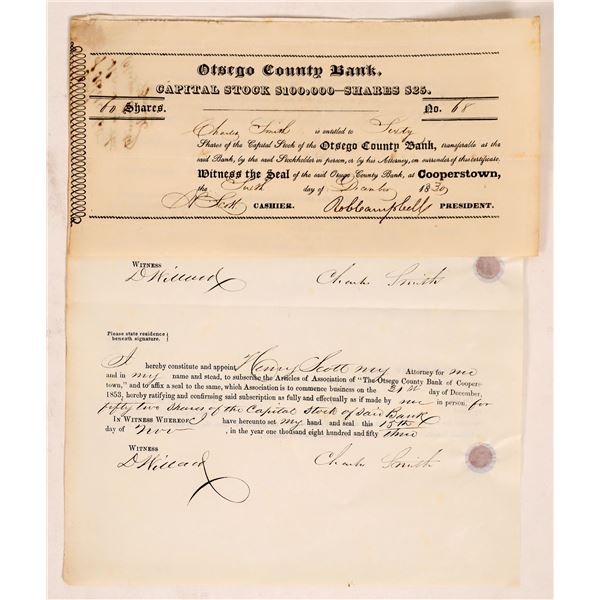 Otsego County Bank.
CAPITAL STOCK $100,000—SHARES $25.
60 Shares. No. 68
Charles Smith is entitled to Sixty
Shares of the Capital Stock of the Otsego County Bank, transferable at the
said Bank, by the said Stockholder in person, or by his Attorney, on surrender of this certificate.
Witness the Seal of the said Otsego County Bank, at Cooperstown,
the Tenth day of December 1830
H Scott CASHIER. Rob Campbell PRESIDENT.
WITNESS
D Willard Charles Smith
Please state residence
beneath signature.
I hereby constitute and appoint Henry Scott my Attorney for me
and in my name and stead, to subscribe the Articles of Association of "The Otsego County Bank of Coopers-
town," and to affix a seal to the same, which Association is to commence business on the 21st day of December,
1853, hereby ratifying and confirming said subscription as fully and effectually as if made by me in person, for
fifty two Shares of the Capital Stock of said Bank
IN WITNESS WHEREOF I have hereunto set my hand and seal this 15th
day of Nov , in the year one thousand eight hundred and fifty three
WITNESS
D Willard Charles Smith